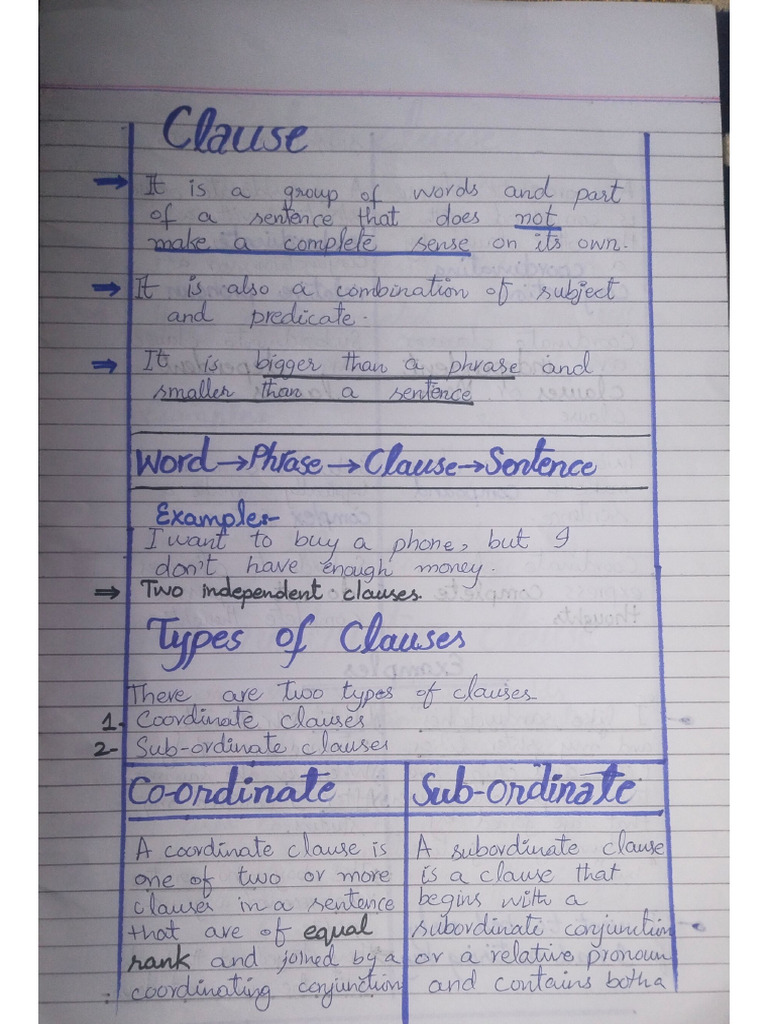 Clause
→ It is a group of words and part
of a sentence that does not
make a complete sense on its own.
→ It is also a combination of subject
and predicate.
→ It is bigger than a phrase and
smaller than a sentence
Word→Phrase→Clause→Sentence
Examples-
I want to buy a phone, but I
don't have enough money.
⇒ Two independent clauses.
Types of Clauses
There are two types of clauses
1. Coordinate clauses
2- Sub-ordinate clauses
Co-ordinate
A coordinate clause is
one of two or more
clauses in a sentence
that are of equal
rank and joined by a
coordinating conjunction
Sub-ordinate
A subordinate clause
is a clause that
begins with a
subordinate conjunction
or a relative pronoun
and contains both a